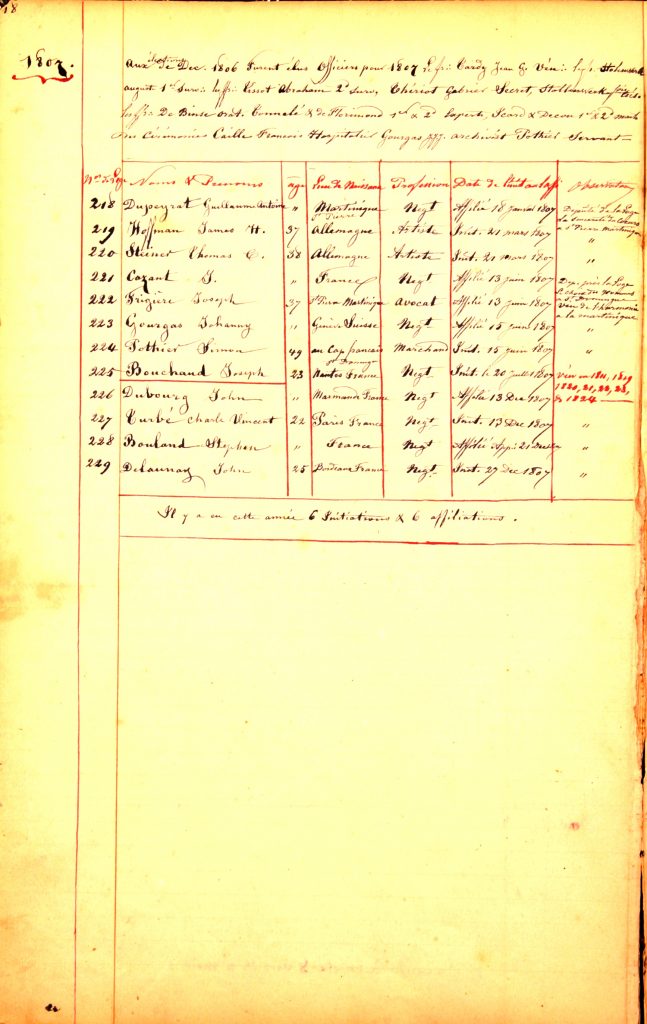 18
1807.
Aux élections de Dec. 1806 Furent élus Officiers pour 1807 Le fr∴ Cardy Jean G. Vén∴ le fr∴
august 1er Surv∴ le ffr∴ Abraham 2d Surv. Thériot Gabriel Secret,
le ffr∴ De Binse orat. Connelé & de Florimond 1er & 2d Experts, Icard & Decou 1er & 2d
des Cérémonies Caille Francois Hospitalier Gourgas archiviste Pothier Servant
Nos Noms & Prenoms age Lieu de Naissance Profession Date de Observation
218 Dupeyrat Guillaume Antoine " Martinique St Pierre Negt Affilié 18 janvier 1807 Deputé de la Loge
219 Hoffman James H. 37 Allemagne Artiste Init. 21 mars 1807 a St Pierre Martinique
220 Steiner Thomas C. 38 Allemagne Artiste Init. 21 mars 1807 "
221 Cazant J. " France Negt Affilié 13 juin 1807 "
222 Frigière Joseph 37 St Pierre Martinique Avocat Affilié 13 juin 1807 Dep. près la Loge a St Domingue Vén de l'harmonie a la martinique
223 Gourgas Johanny " Suisse Negt Affilié 15 juin 1807 "
224 Pothier Simon 49 au Cap francais St Domingue Marchand Init. 15 juin 1807 "
225 Bouchaud Joseph 23 Nantes France Negt Init. le 20 juillet 1807 Vén en 1811, 1819 1820, 21, 22, 23, & 1824
226 Dubourg John " Marmande France Negt Affilié 13 Dec 1807
227 Turbé Charle Vincent 22 Paris France Negt Init. 13 Dec 1807 "
228 Bouland Stephen " France Negt Affilié 21 "
229 Delaunay John 25 Bordeaux France Negt Init. 27 Dec 1807 "
Il y a eu cette année 6 Initiations & 6 affiliations.